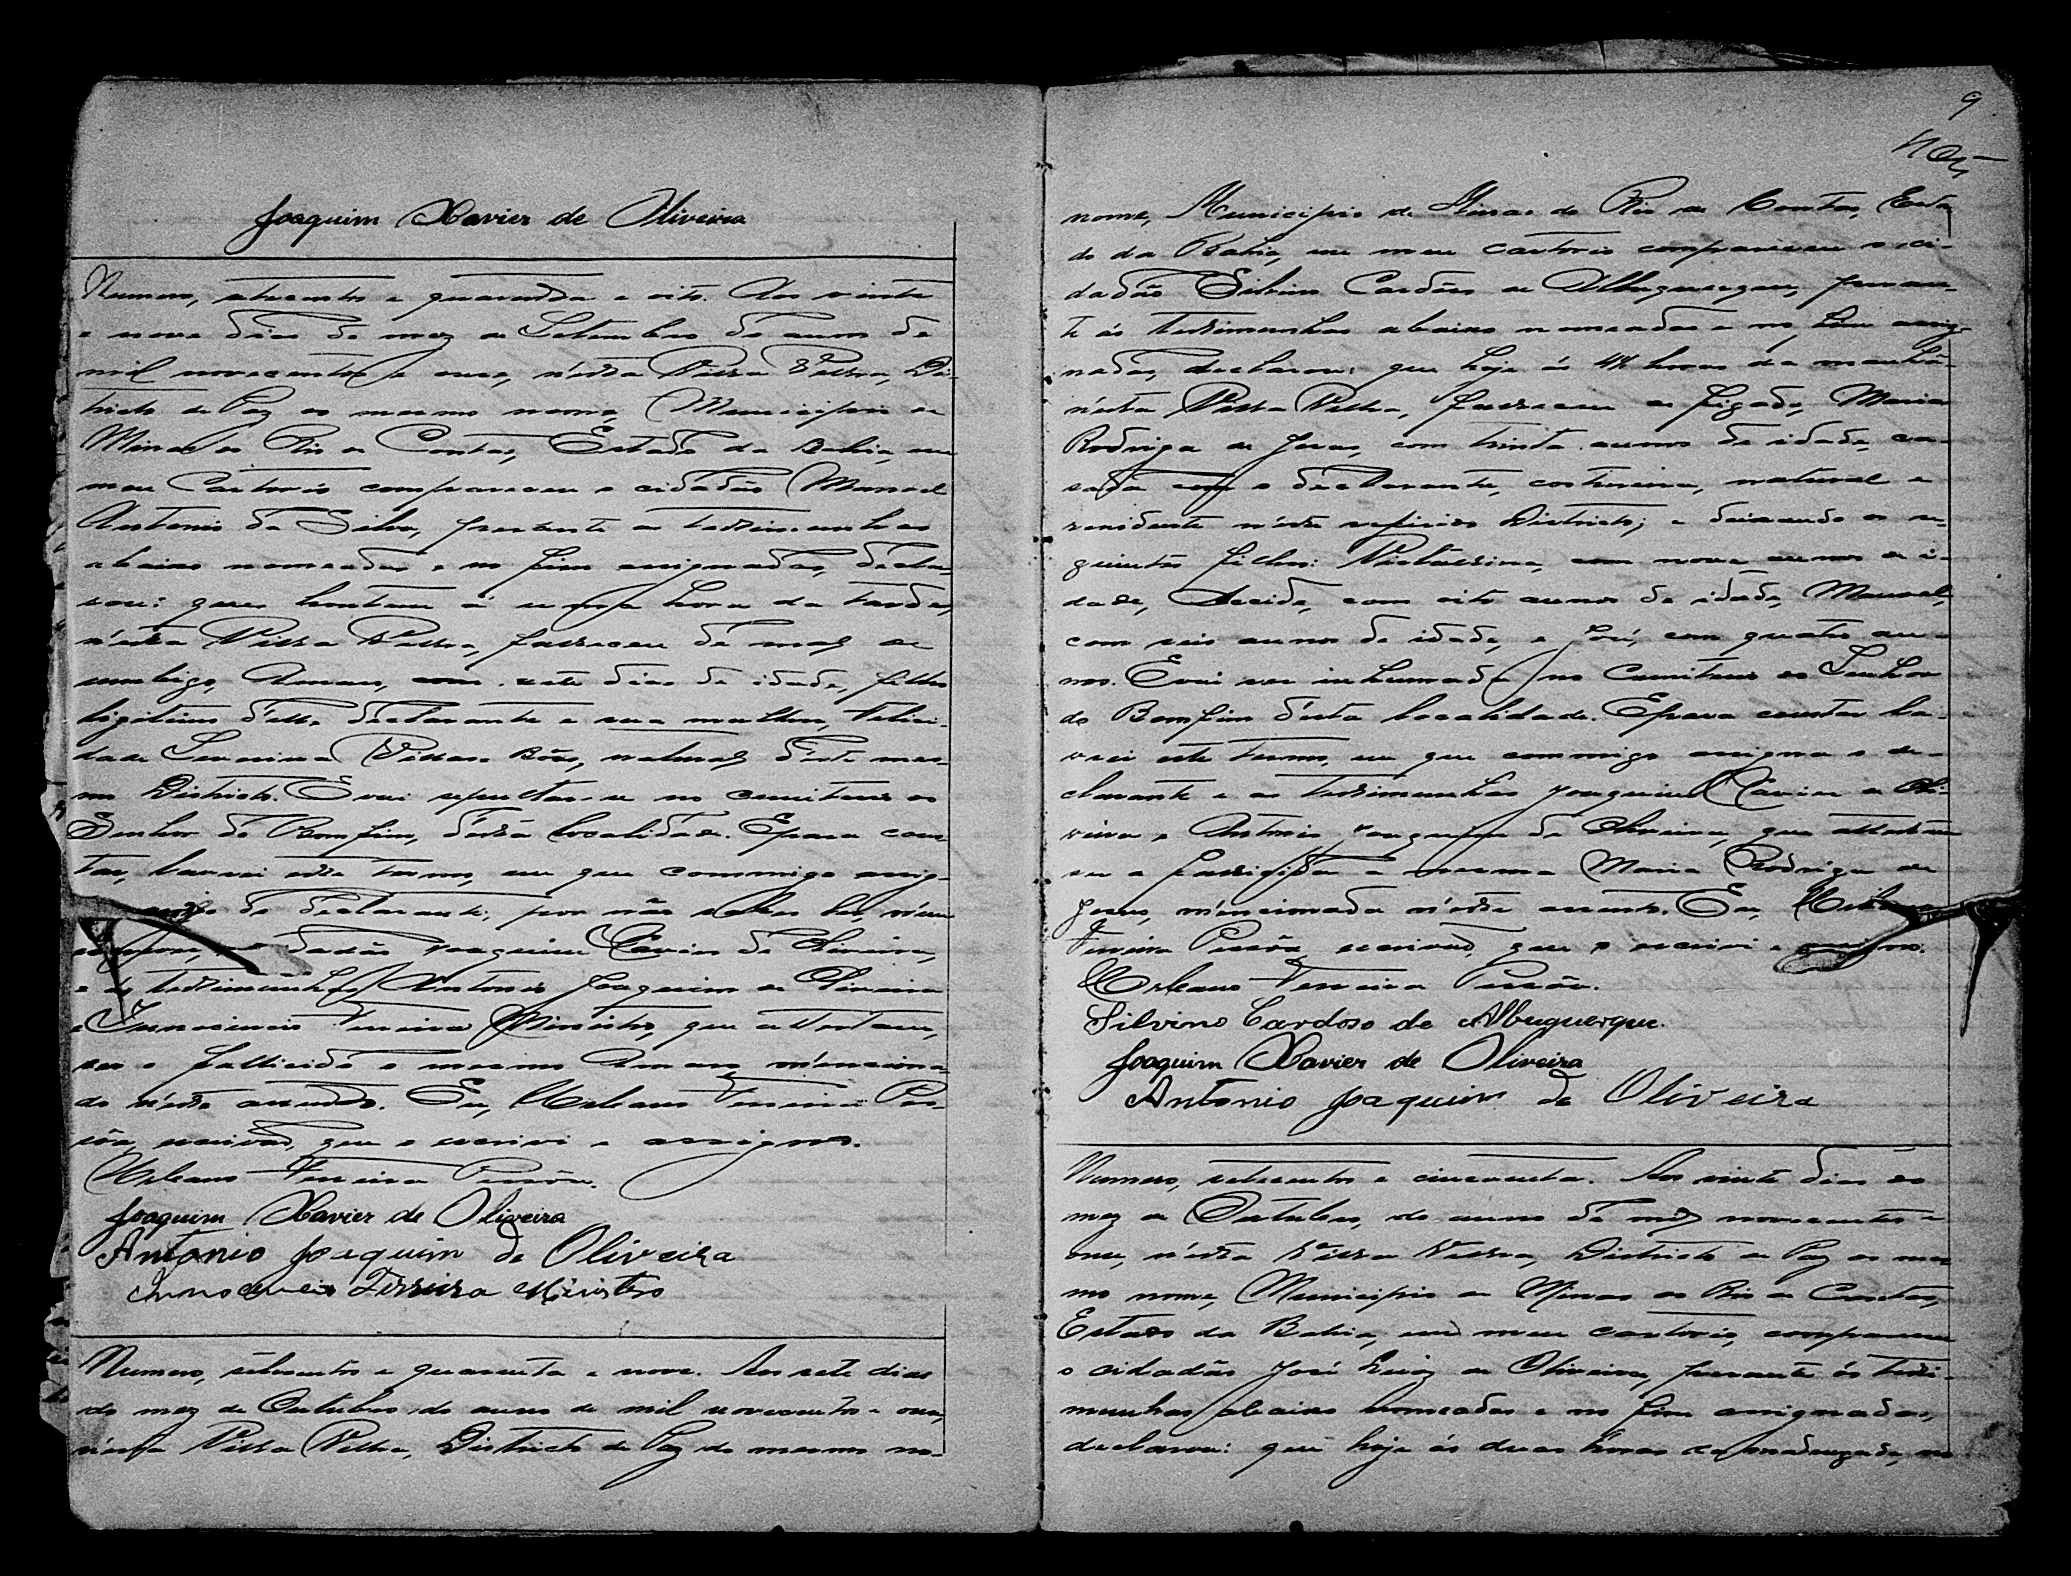 Joaquim Xavier de Oliveira
Numero, setecentos e quarenta e oito. Aos vinte
e nove dias do mez de Setembro do anno de
mil novecentos e onze, n'esta Villa Velha, Dis-
tricto de Paz do mesmo nome, Municipio de
Minas do Rio de Contas, Estado da Bahia, em
meu Cartorio compareceu o cidadão Manoel
Antonio da Silva, perante as testimunhas
abaixo nomeadas e no fim assignadas, decla-
rou: que hontem á uma hora da tarde,
n'esta Villa Velha, falleceu de mal de
umbigo, Amaro, com sete dias de idade, filho
legitimo d'elle declarante e sua mulher, Felici-
dade Severina Villas Bôas, natural d'este mes-
mo Districto. E vai sepultar-se no cemiterio do
Senhor do Bomfim, d'esta localidade. E para cons-
tar, lavrei este termo, em que commigo assig-
do declarante, por não saber ler, nem
escrever, dadão Joaquim Xavier de Oliveira,
e as testimunhas Antonio Joaquim de Oliveira
e Innocencio Ferreira Ministro, que attestam
ser o fallecido o mesmo Amaro menciona-
do n'este assento. Eu, Urbano Ferreira Pes-
sôa, escrivão, que o escrivi e assigno.
Urbano Ferreira Pessôa.
Joaquim Xavier de Oliveira
Antonio Joaquim de Oliveira
Innocencio Ferreira Ministro
Numero, setecentos e quarenta e nove. Aos sete dias
do mez de Outubro do anno de mil novecentos e onze,
n'esta Villa Velha, Districto de Paz do mesmo no-
9
nome, Municipio de Minas do Rio de Contas, Esta-
do da Bahia, em meu cartorio compareceu o ci-
dadão Silvino Cardôso de Albuquerque, peran-
te ás testimunhas abaixo nomeadas e no fim assig-
nadas, declarou: que hoje ás horas da manhã,
n'esta Villa Velha, falleceu de figado, Maria
Rodriga de Jesus, com trinta annos de idade, ca-
sada com o declarante, costureira, natural e
residente n'este referido Districto; e deixando os se-
guintes filhos: Victalina, com nove annos de i-
dade, com oito annos de idade, Manoel,
com seis annos de idade, e José, com quatro an-
nos. E vai ser inhumada no Cemiterio do Senhor
do Bomfim d'esta localidade. E para constar la-
vrei este termo, em que commigo assigna o de-
clarante e as testimunhas Joaquim Xavier de Oli-
veira e Antonio Joaquim de Oliveira, que attestam
ser a fallecida a mesma Maria Rodriga de
Jesus, mencionada n'este assento. Eu, Urbano
Ferreira Pessôa, escrivão, que o escrivi e assigno.
Urbano Ferreira Pessôa.
Silvino Cardoso de Albuquerque.
Joaquim Xavier de Oliveira
Antonio Joaquim de Oliveira
Numero, setecentos e cincoenta. Aos vinte dias do
mez de Outubro, do anno de mil novecentos e
onze, n'esta Villa Velha, Districto de Paz do mes-
mo nome, Municipio de Minas do Rio de Contas,
Estado da Bahia, em meu cartorio, compareceu
o cidadão José Luiz de Oliveira, perante ás testi-
munhas abaixo nomeadas e no fim assignadas,
declarou: que hoje ás duas horas da madrugada, no